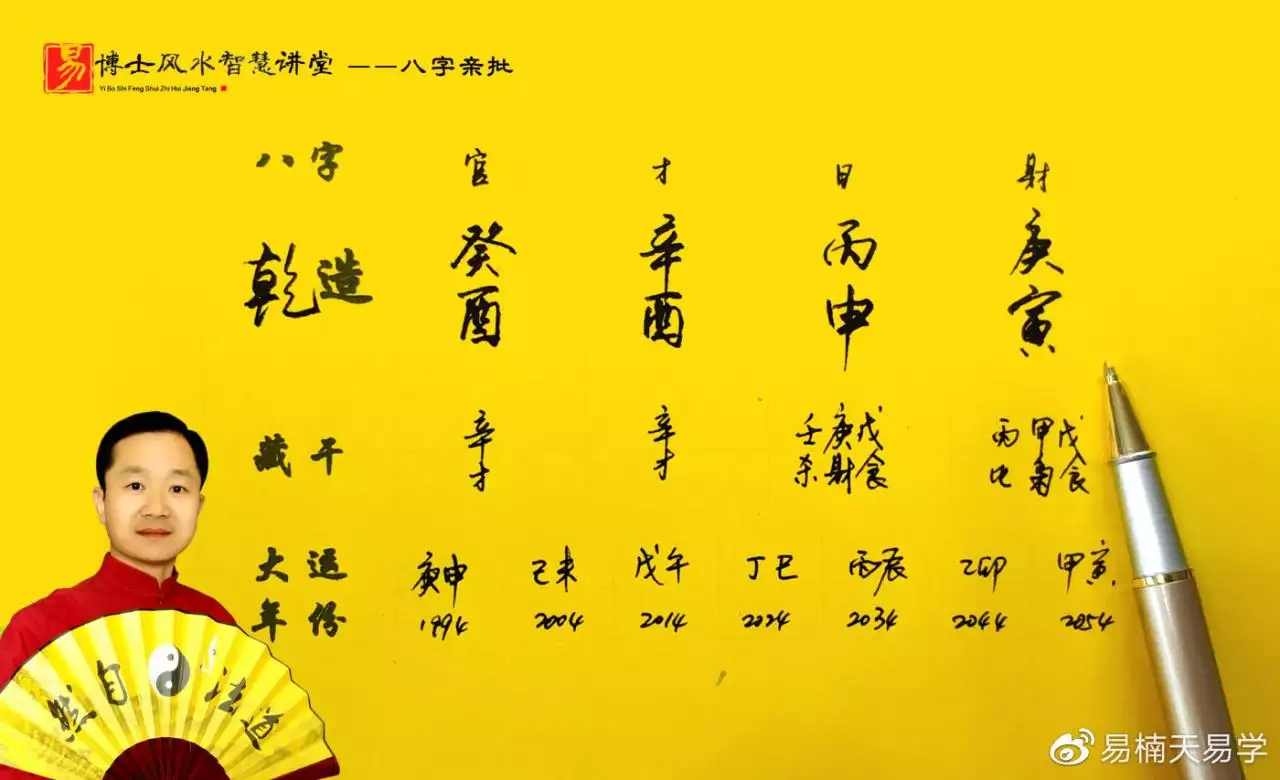 易 博士风水智慧讲堂 ——八字亲批
Yi Bo Shi Feng Shui Zhi Hui Jiang Tang
八字 官 才 日 财
乾造 癸酉 辛酉 丙申 庚寅
藏干 辛才 辛才 壬杀 庚财 戊食 丙比 甲枭 戊食
大运 庚申 己未 戊午 丁巳 丙辰 乙卯 甲寅
年份 1994 2004 2014 2024 2034 2044 2054
然自法道
易楠天易学